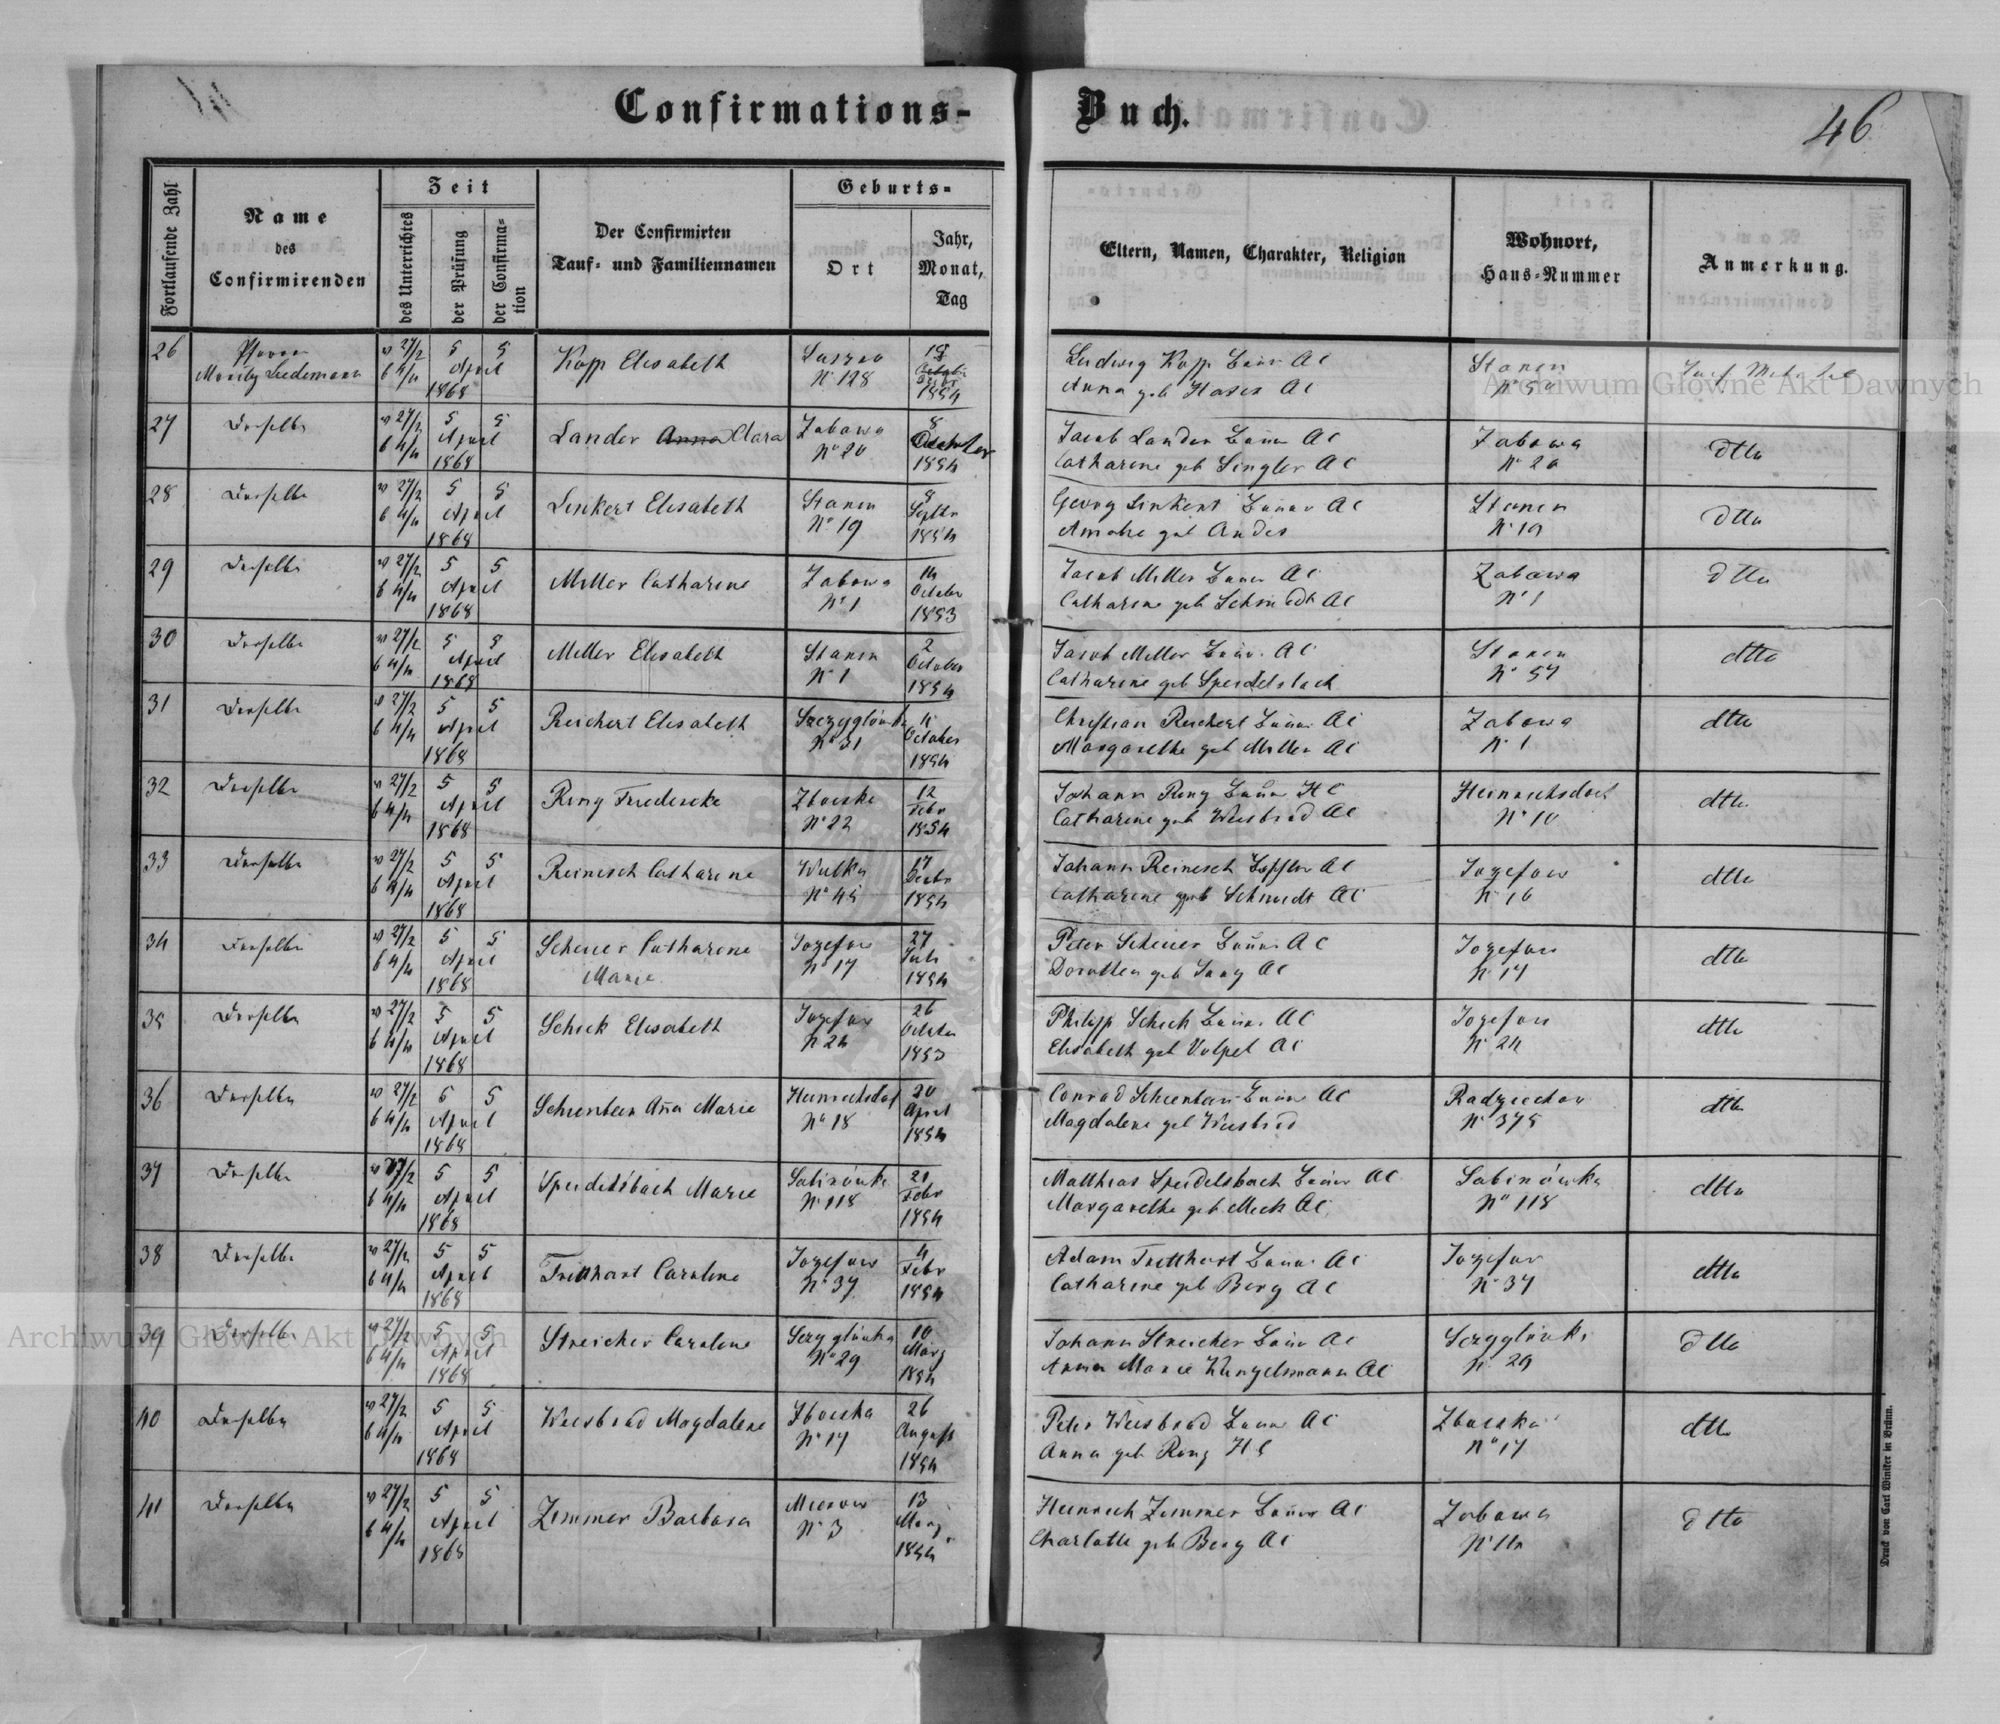 Confirmations-Buch.
46
Fortlaufende Zahl
Name des Confirmirenden
Zeit
des Unterrichtes
der Prüfung
der Confirmation
Der Confirmirten Tauf- und Familiennamen
Geburts-
Ort
Jahr, Monat, Tag
Eltern, Namen, Charakter, Religion
Wohnort, Haus-Nummer
Anmerkung.
26 Pfarrer 27/2 5 5 Kopp Elisabeth Ludwig Kopp Bauer AC Stanin
b 4/4 April N 128 Anna geb AC
1868 1854
27 Derselbe 27/2 5 5 Lander Clara Zabawa 8 October Jacob Lander Bauer AC Zabawa dtto
b 4/4 April N 20 1854 Catharine geb Singler AC N 20
1868
28 Derselbe 27/2 5 5 Linkert Elisabeth Stanin 8 Septbr Georg Linkert Bauer AC Stanin dtto
b 4/4 April N 19 1854 geb Andes N 19
1868
29 Derselbe 27/2 5 5 Miller Catharine Zabawa 14 October Jacob Miller Bauer AC Zabawa dtto
b 4/4 April N 1 1853 Catharine geb Schmidt AC N 1
1868
30 Derselbe 27/2 5 5 Miller Elisabeth Stanin 2 October Jacob Miller Bauer AC Stanin dtto
b 4/4 April N 1 1854 Catharine geb Speidelsbach N 57
1868
31 Derselbe 27/2 5 5 Reichert Elisabeth 4 October Christian Reichert Bauer AC Zabawa dtto
b 4/4 April N 31 1854 Margarethe geb Miller AC N 1
1868
32 Derselbe 27/2 5 5 Ring Friedericke Zboiska 12 Febr Johann Ring Bauer HC Heinrichsdorf dtto
b 4/4 April N 22 1854 Catharine geb Weisbrod AC N 10
1868
33 Derselbe 27/2 5 5 Reinisch Catharine Wulka 17 1854 Johann Reinisch AC Jozefow dtto
b 4/4 April N 45 Catharine geb Schmidt AC N 16
1868
34 Derselbe 27/2 5 5 Scheuer Catharine Jozefow 27 Juli Peter Scheuer Bauer AC Jozefow dtto
b 4/4 April Marie N 17 1854 Dorothea geb AC N 17
1868
35 Derselbe 27/2 5 5 Schick Elisabeth Jozefow 26 October Philipp Schick Bauer AC Jozefow dtto
b 4/4 April N 24 1853 Elisabeth geb Volpel AC N 24
1868
36 Derselbe 27/2 5 5 Anna Marie Heinrichsdorf 20 April Conrad Bauer AC Radziechow dtto
b 4/4 April N 18 1854 Magdalene geb Weisbrod N 375
1868
37 Derselbe 27/2 5 5 Speidelsbach Marie Sabinówka 21 Febr Matthias Speidelsbach Bauer AC Sabinówka dtto
b 4/4 April N 118 1854 Margarethe geb Meck AC N 118
1868
38 Derselbe 27/2 5 5 Tritthart Caroline Jozefow 4 Febr Adam Tritthart Bauer AC Jozefow dtto
b 4/4 April N 37 1854 Catharine geb Berg AC N 37
1868
39 Derselbe 27/2 5 5 Streicher Caroline 10 März Johann Streicher Bauer AC dtto
b 4/4 April N 29 1854 Anna Marie AC N 29
1868
40 Derselbe 27/2 5 5 Weisbrod Magdalene Zboiska 26 August Peter Weisbrod Bauer AC Zboiska dtto
b 4/4 April N 17 1854 Anna geb Ring HC N 17
1868
41 Derselbe 27/2 5 5 Zimmer Barbara N 3 13 März Heinrich Zimmer Bauer AC Zabawa dtto
b 4/4 April 1854 Charlotte geb Berg AC
1868
Druck von Carl Winiker in Brünn.
Archiwum Główne Akt Dawnych
Archiwum Główne Akt Dawnych